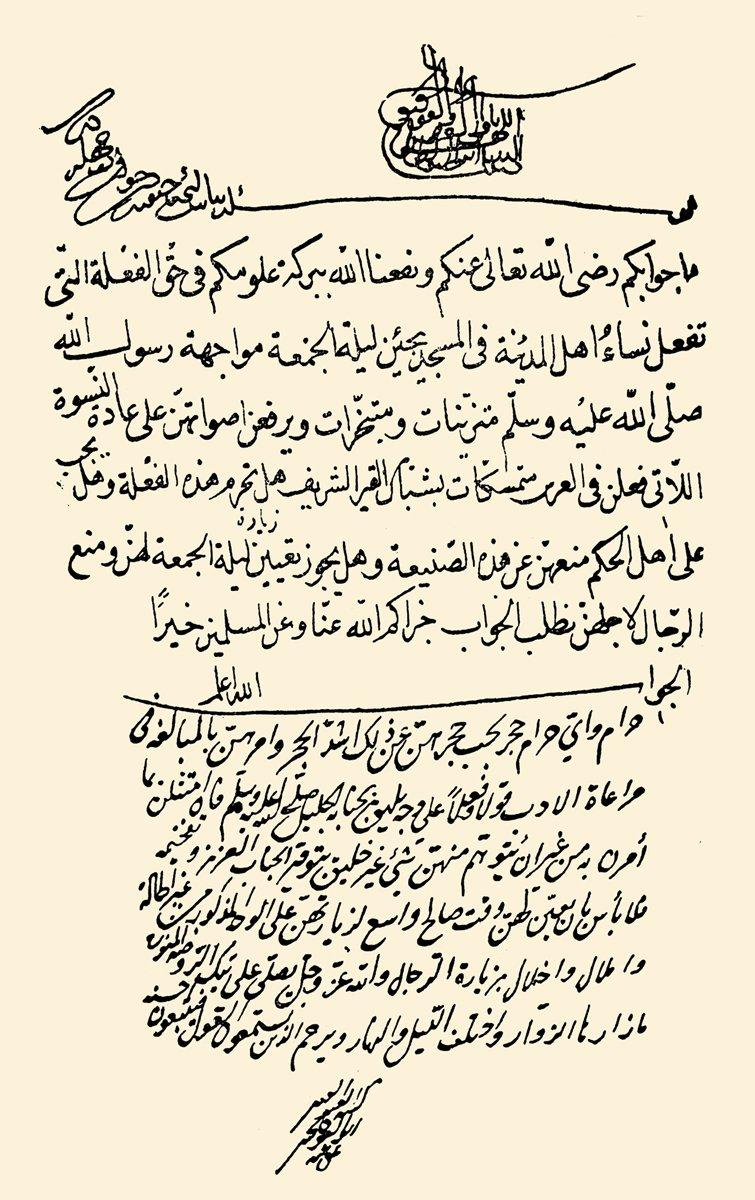 ما جوابكم رضى الله تعالى عنكم ونفعنا الله ببركة علومكم فى حق الفعلة التى
تفعل نساء اهل المدينة فى المسجد يجئن ليلة الجمعة مواجهة رسول الله
صلّى الله عليه وسلّم متزيّنات ومتبخّرات ويرفعن اصواتهنّ على عادة النسوة
اللاتى فعلن فى العرس متمسكات بشباك القبر الشريف هل تحرم هذه الفعلة وهل يجب
على اهل الحكم منعهنّ عن هذه الصّنيعة وهل يجوز تعيين زيارة ليلة الجمعة لهنّ ومنع
الرّجال لاجلهنّ نطلب الجواب جزاكم الله عنّا وعن المسلمين خيرًا
الجواب الله اعلم
حرام واىّ حرام يجب حجرهنّ عن ذلك اشدّ الحجر وامرهنّ بالمبالغة فى
مراعاة الادب قولا وفعلاً على وجه يليق بجنابه الجليل صلّى الله عليه وسلّم فان امتثلن بما
أمرن به من غير ان يتوهم منهنّ شئ غير خليق بتوقير الجناب العزيز وتفخيمه
فلا بأس بان يعيّن لهنّ وقت صالح واسع لزيارتهنّ على الوجه المذكور من غير اطالة
واملال واخلال بزيارة الرجال والله عزّ وجلّ يصلّى على تلك الروضة
ما زارها الزوّار واختلف الليل والنهار ويرحم الذين يستمعون القول فيتبعون احسنه